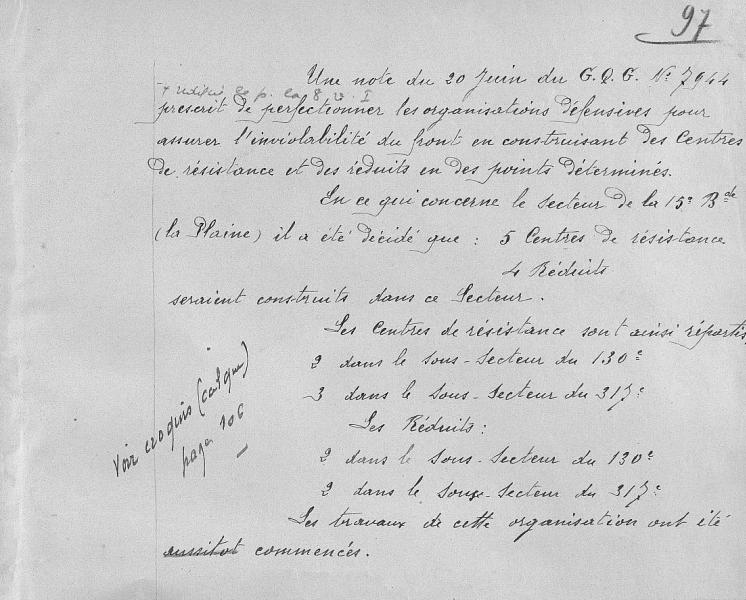 97
Une note du 20 Juin du G.Q.G. No 7944
prescrit de perfectionner les organisations défensives pour
assurer l'inviolabilité du front en construisant des Centres
de résistance et des réduits en des points déterminés.
En ce qui concerne le Secteur de la 15e Bde
(la Plaine) il a été décidé que : 5 Centres de résistance
4 Réduits
seraient construits dans ce Secteur.
Les Centres de résistance sont ainsi répartis
2 dans le Sous-Secteur du 130e
3 dans le Sous-Secteur du 317e
Les Réduits :
2 dans le Sous-Secteur du 130e
2 dans le Sous-Secteur du 317e
Les travaux de cette organisation ont été
aussitot commencés.
Voir croquis (calque)
page 106